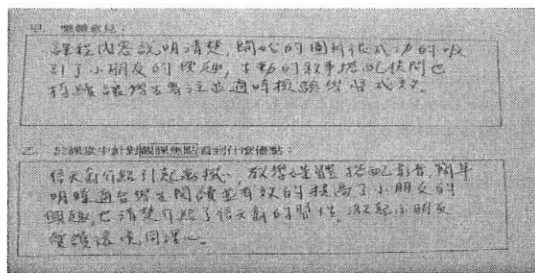 甲、整體意見：
課程內容說明清楚，開始的圖片很成功的吸
引了小朋友的興趣，生動的敘事搭配提問也
持續讓學生專注並適時檢驗學習成效。
乙、於課堂中針對觀課焦點看到什麼優點：
信天翁介紹引起動機，教學 搭配影音，簡單
明瞭適合學生閱讀並有效的提高了小朋友的
興趣，也清楚介紹了信天翁的習性，激起小朋友
愛護環境，同理心。